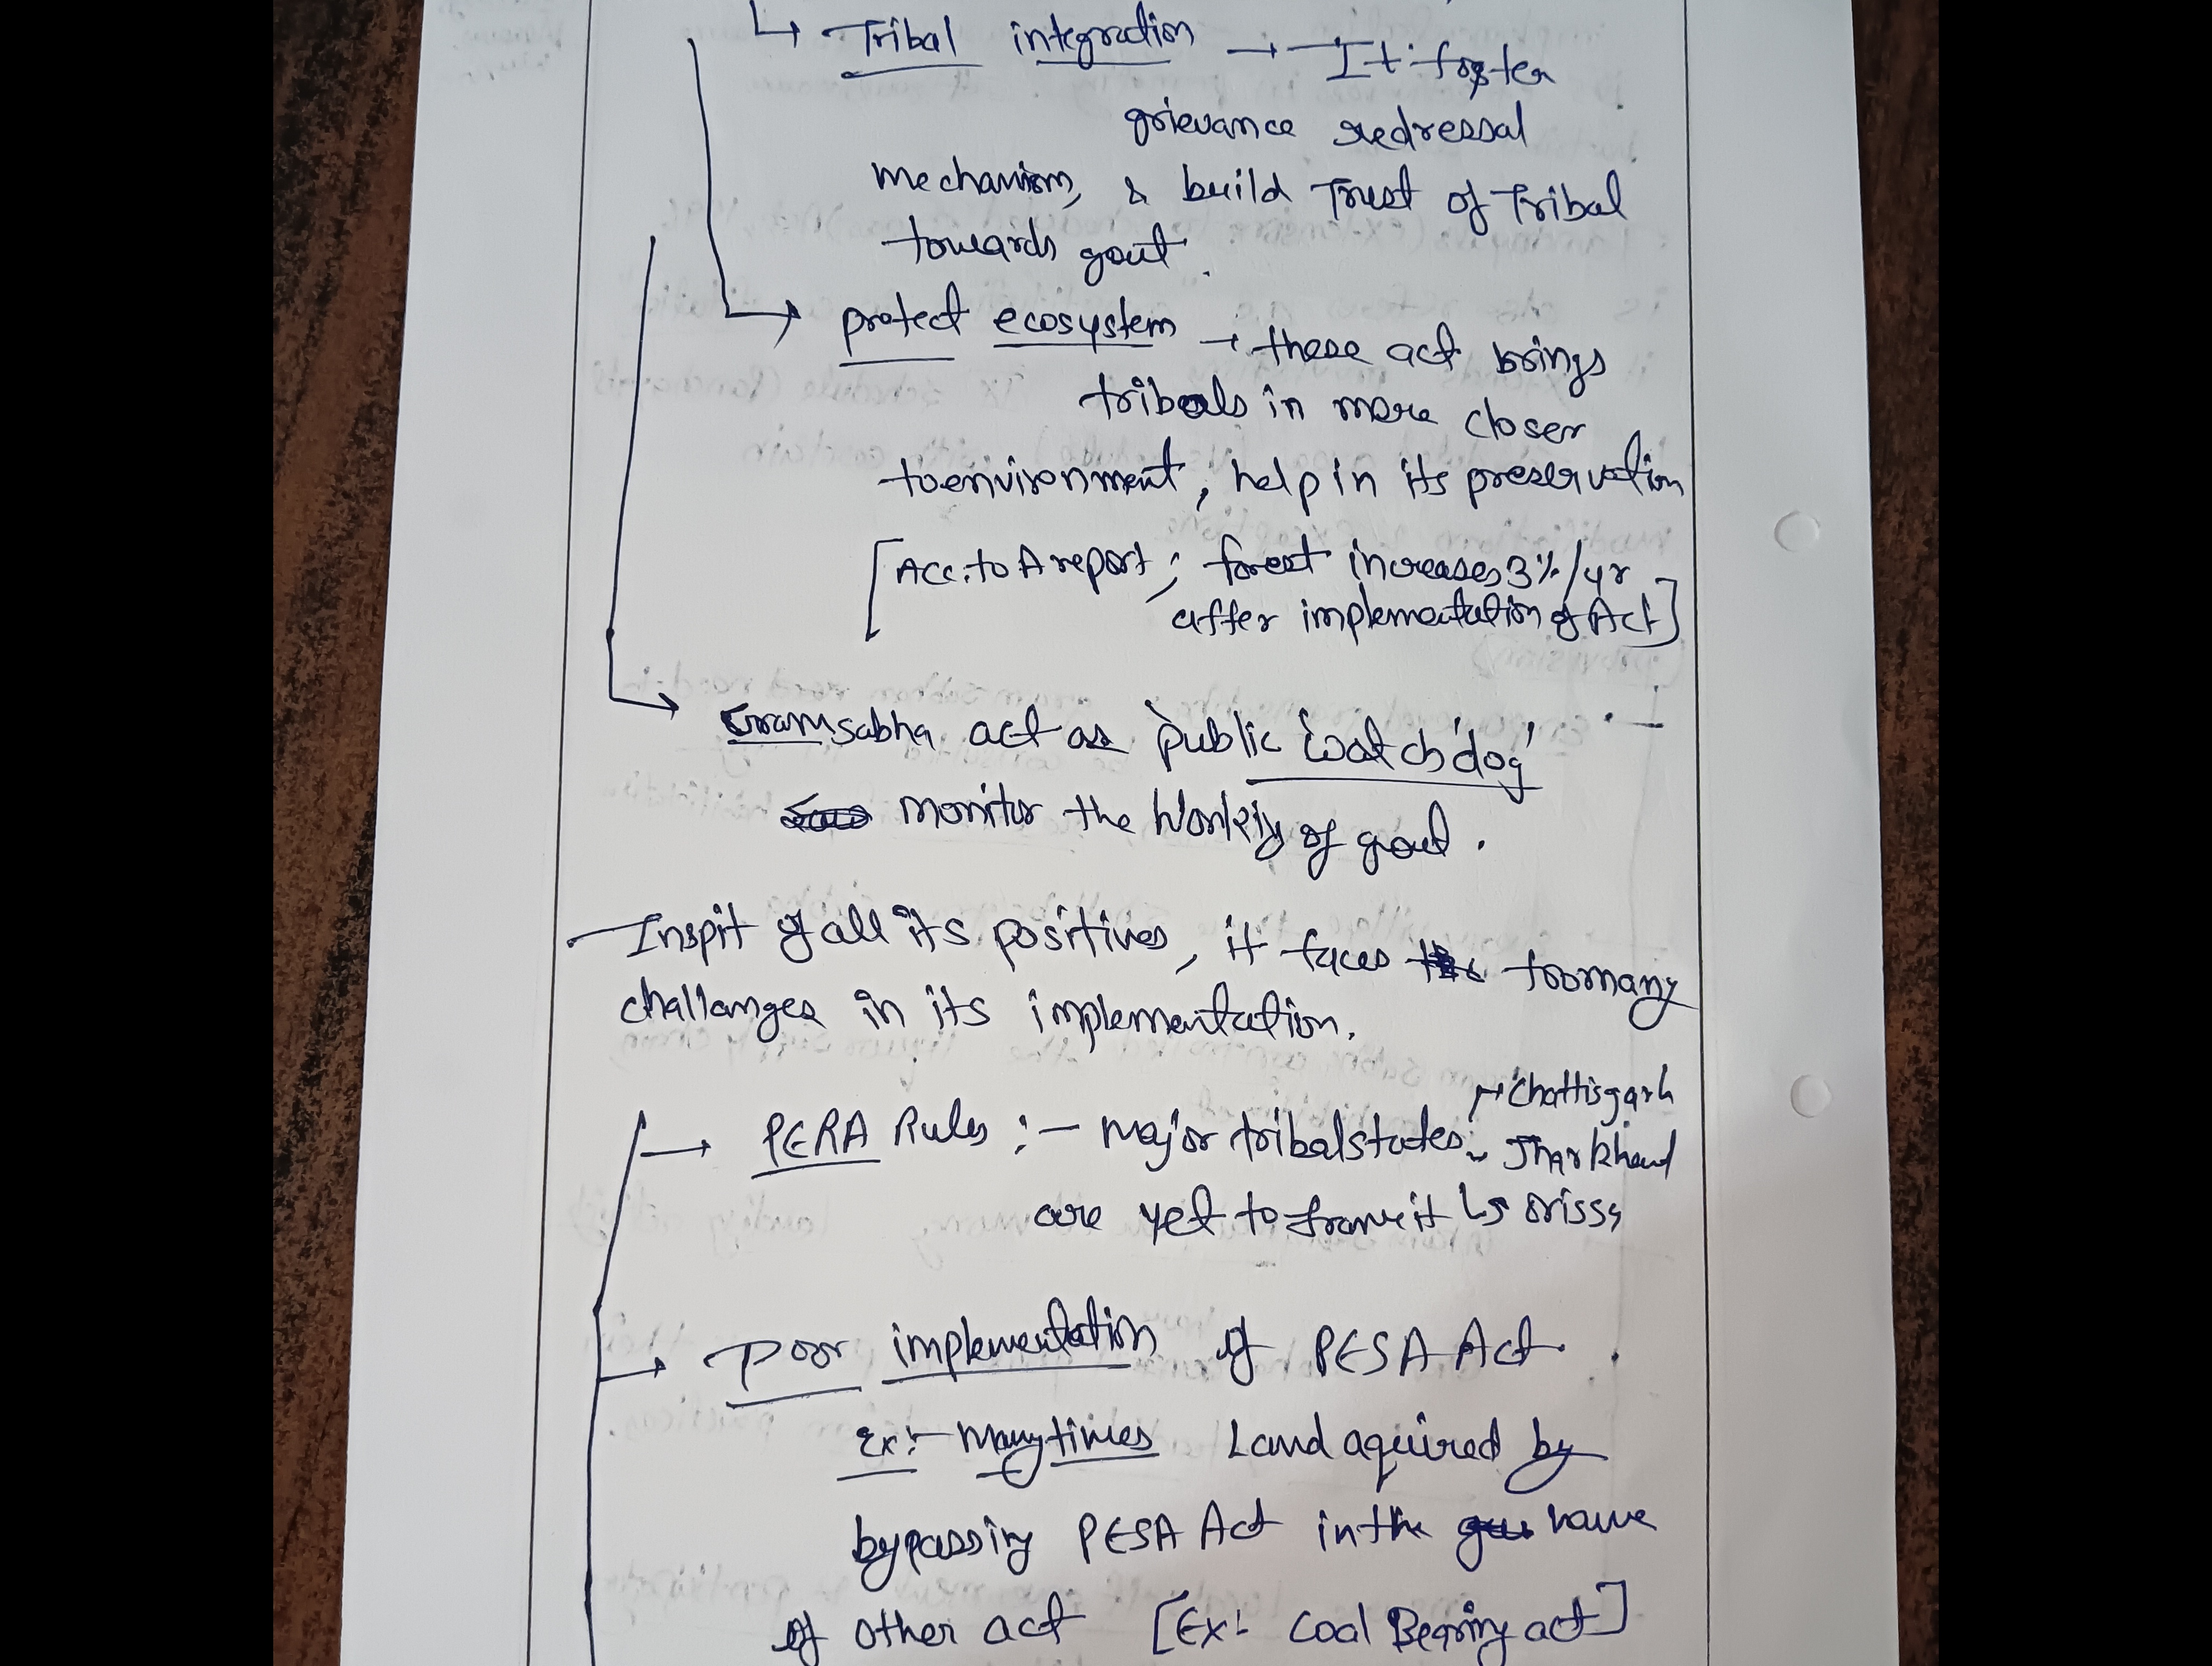 ↳ Tribal integration → It foster
grievance redressal
mechanism, & build Trust of Tribal
towards govt.
→ protect ecosystem → these act brings
tribals in more closer
to environment, help in its preservation
[Acc. to A report; forest increases 3%/yr
after implementation of Act]
→ Gramsabha act as 'public 'watch'dog'
monitor the Working of govt.
Inspit of all its positives, it faces too many
challanges in its implementation.
→ Chattisgarh
→ PERA Rules :- Major tribal states → Jharkhand
are yet to frame it ↳ Orissa
→ Poor implementation of PESA Act.
Ex:- Many times Land aquired by
bypassing PESA Act in the name
of other act [Ex: Coal Bearing act]